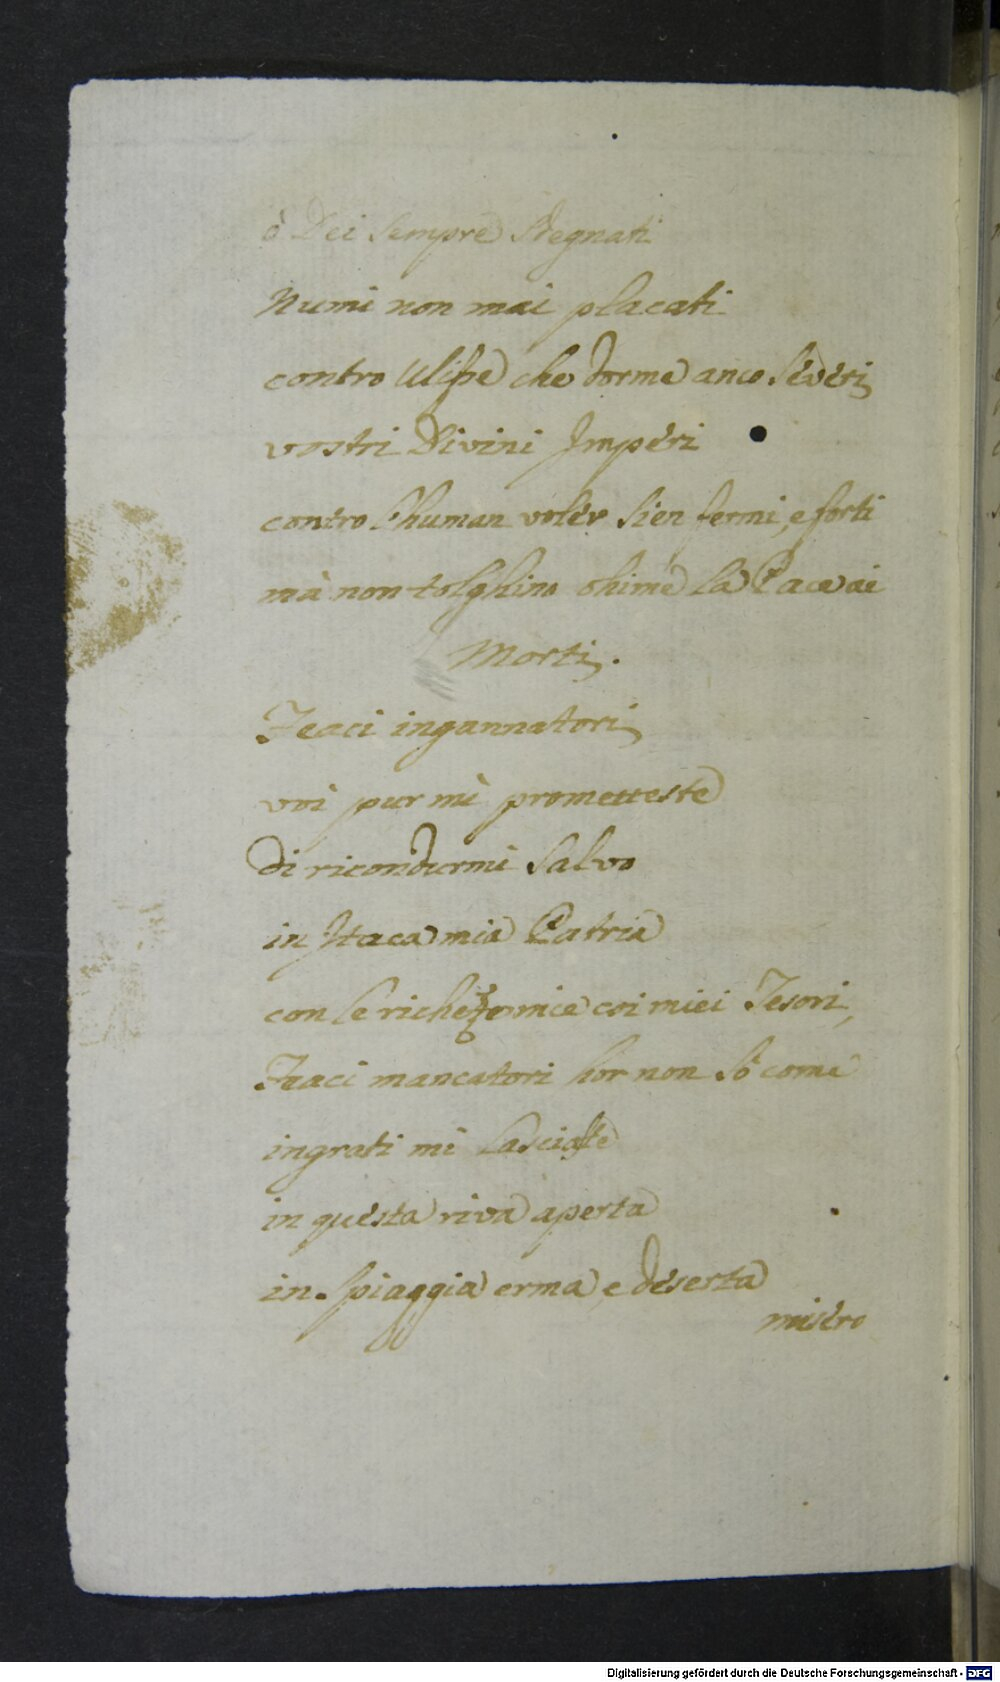 ò Dei sempre sdegnati
Numi non mai placati
contro Ulisse che dorme anco severi,
vostri Divini Imperi
contro l'human voler sien fermi, e forti
mà non tolghino ohime la Pace ai
Morti.
Feaci ingannatori,
voi pur mi prometteste
di ricondurmi salvo
in Itaca mia Patria
con le richezze mie coi miei Tesori,
Feaci mancatori hor non sò come
ingrati mi lasciaste
in questa riva aperta
in spiaggia erma, e deserta
misero
Digitalisierung gefördert durch die Deutsche Forschungsgemeinschaft - DFG